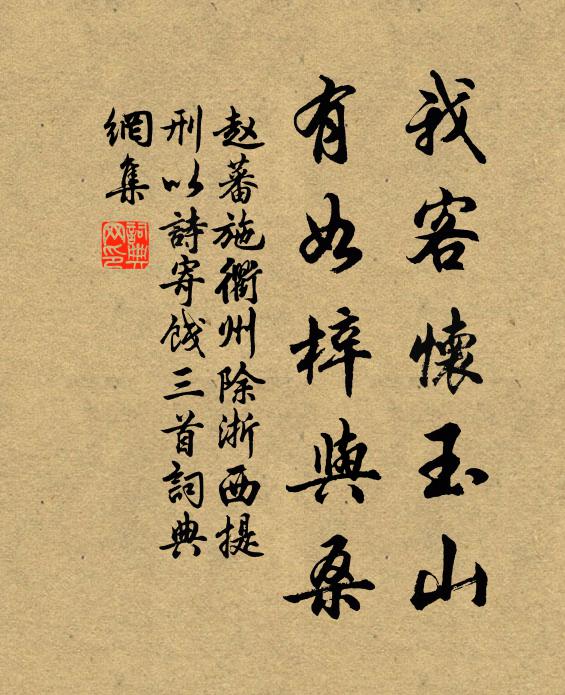 我客懷玉山
有如梓與桑
赵蕃施衢州除浙西提
刑以詩寄餞三首詞典
網集
詞典
网印